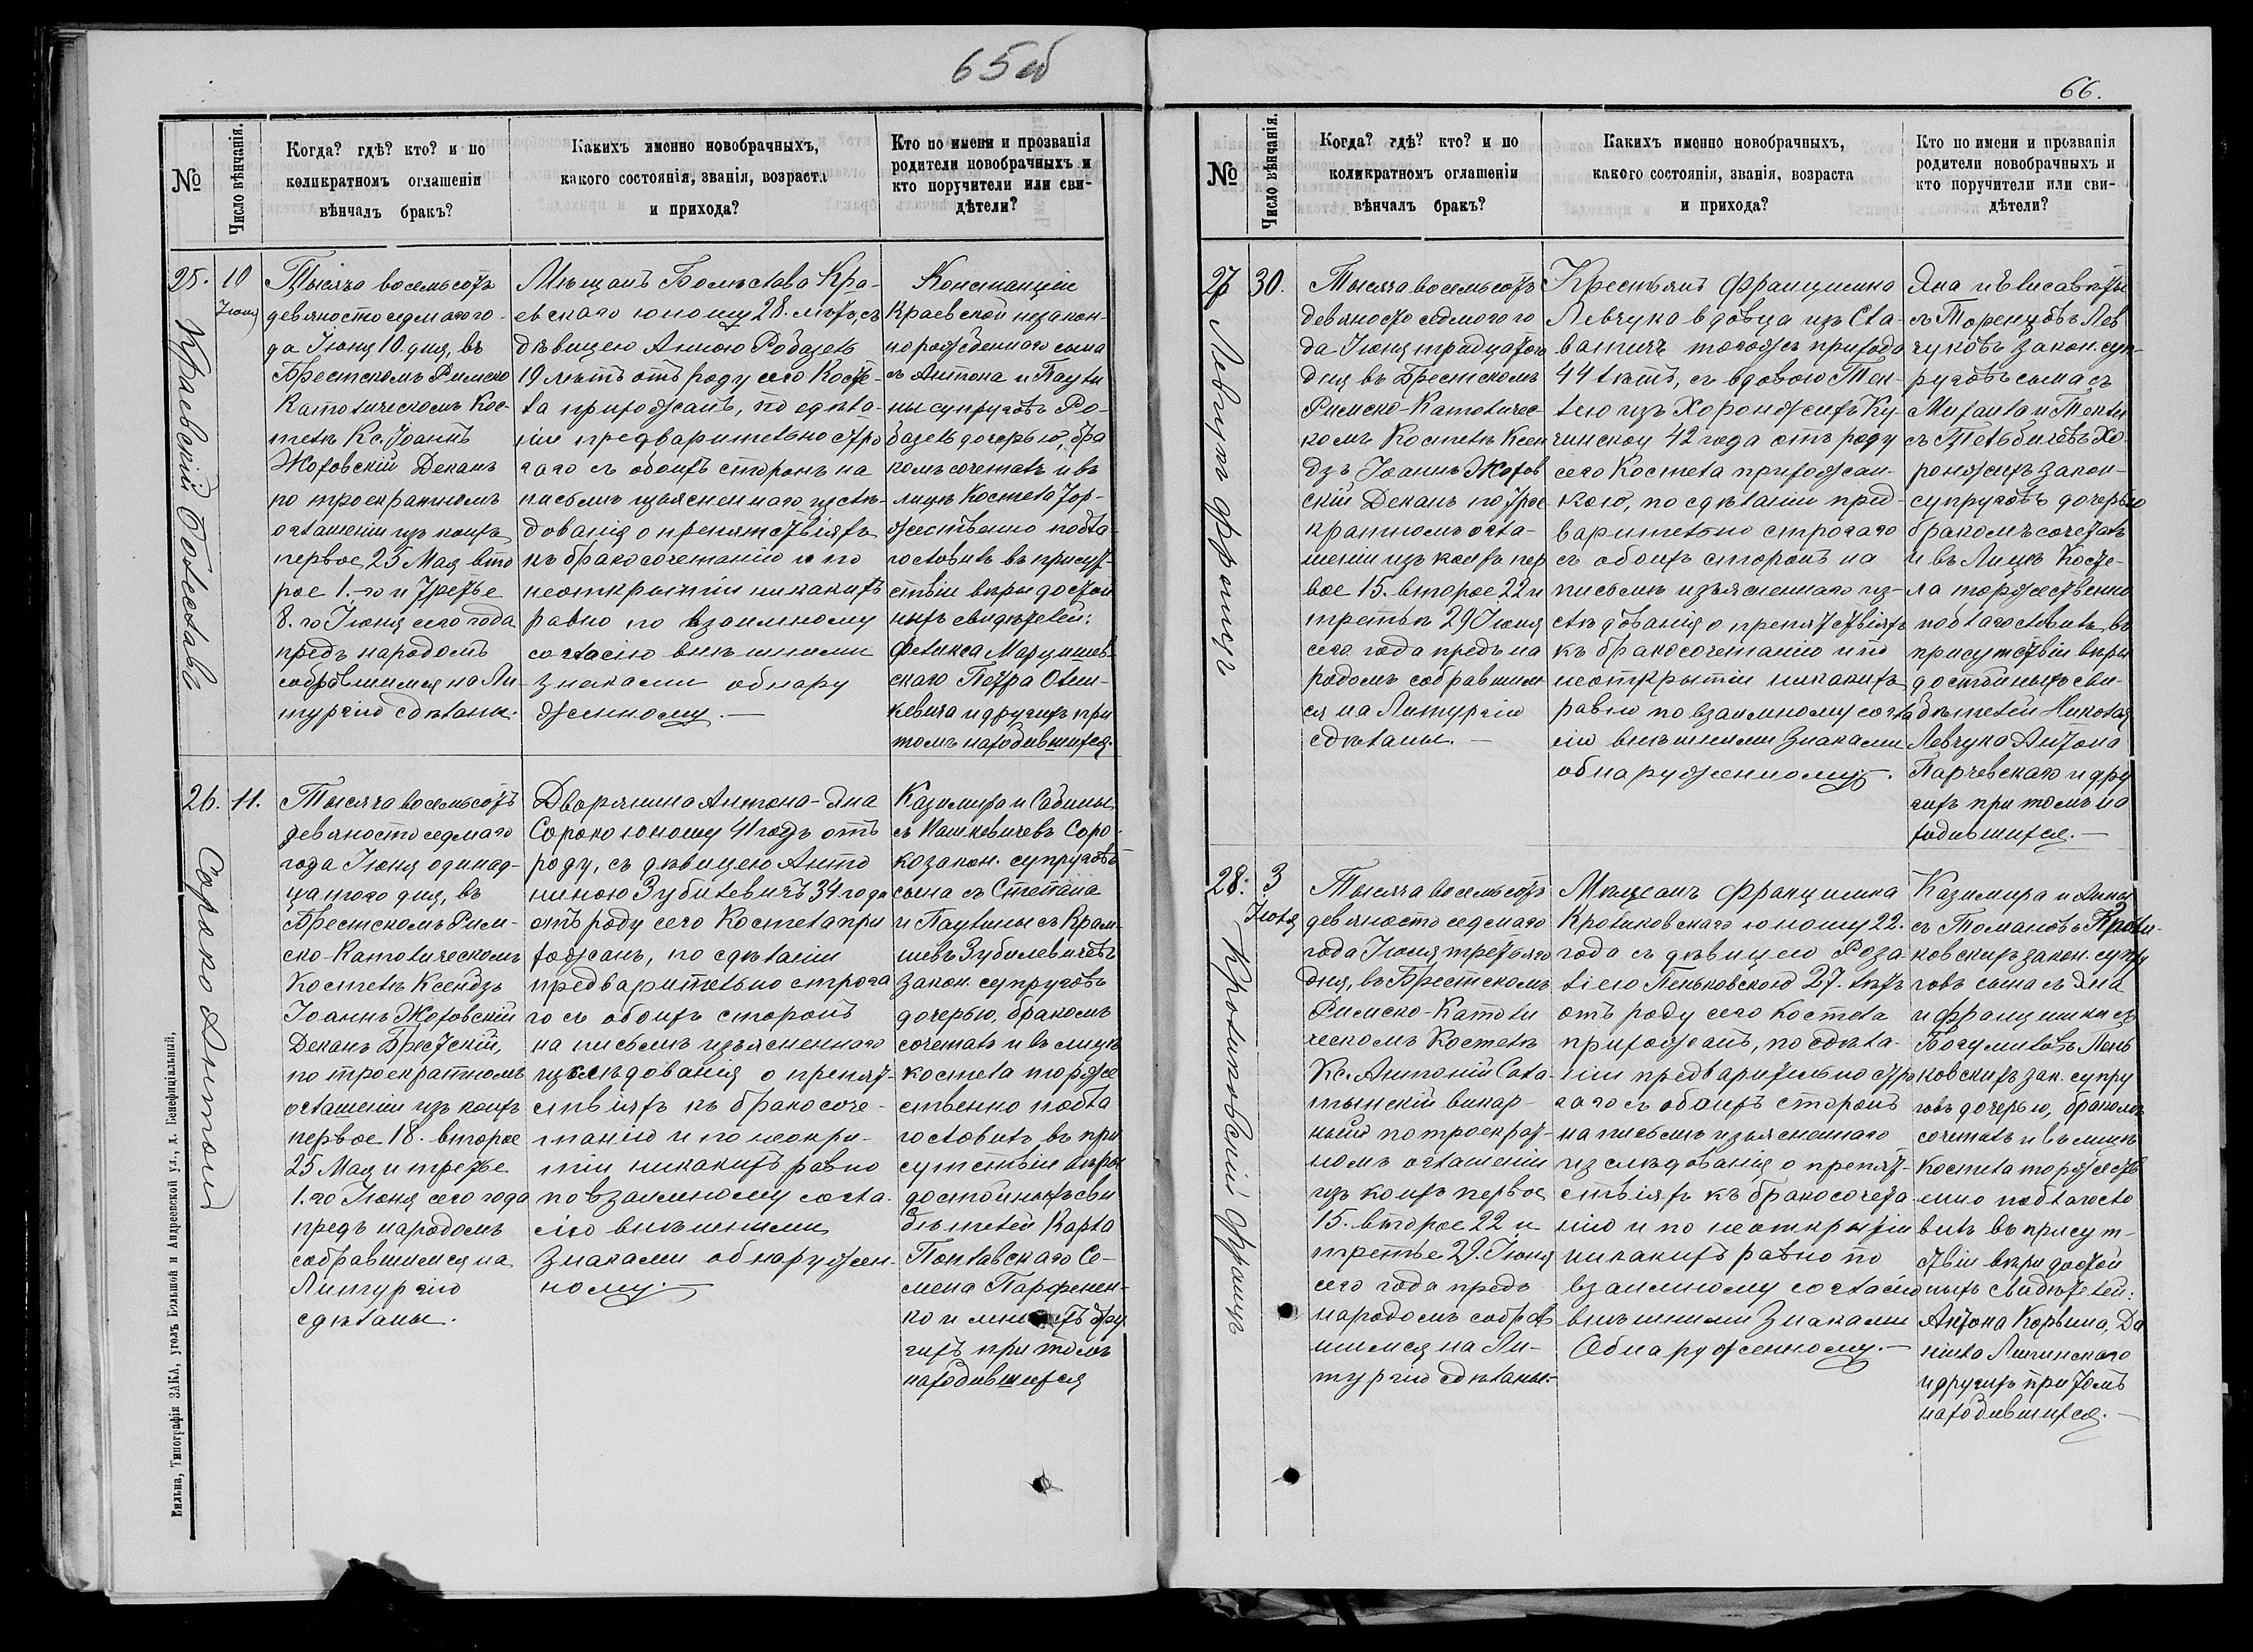 65об
№
Число вѣнчанія.
Когда? гдѣ? кто? и по
коликратномъ оглашеніи
вѣнчалъ бракъ?
Какихъ именно новобрачныхъ,
какого состоянія, званія, возраста
и прихода?
Кто по имени и прозванія
родители новобрачныхъ и
кто поручители или сви-
дѣтели?
25.
10
Іюня
Краевскій Болеславъ
Тысяча восемьсотъ
девяносто седмаго го-
да Іюня 10. дня, въ
Брестскомъ Римско
Католическомъ Кос-
телѣ Кс. Іоаннъ
Жоховскій Деканъ
по троекратномъ
оглашеніи изъ коихъ
первое 25 Мая вто
рое 1.-го и третье
8. го Іюня сего года
предъ народомъ
собравшимся на Ли-
тургію сдѣланы.
Мѣщанъ Болеслава Кра-
евскаго юношу 28. лѣтъ, съ
дѣвицею Анною Робазекъ
19 лѣтъ отъ роду сего Косте-
ла прихожанъ, по сдѣла-
ніи предварительно стро
гаго съ обоихъ сторонъ на
письмѣ изъясненнаго изслѣ-
дованія о препятствіяхъ
къ бракосочетанію и по
неоткрытіи никакихъ
равно по взаимному
согласію внѣшними
знаками обнару
женному.—
Констанціи
Краевской незакон-
норожденнаго сына
съ Антона и Паули
ны супруговъ Ро-
базекъ дочерью, бра
комъ сочеталъ и въ
лицѣ Костела тор-
жественно побла-
гословилъ въ присут-
ствіи вѣры достой
ныхъ свидѣтелей:
Феликса Марцишев-
скаго Петра Олеш-
кевича и другихъ при
томъ находившихся.
26.
11.
Сороко Антоній
Тысяча восемьсотъ
девяносто седмаго
года Іюня одинад-
цатого дня, въ
Брестскомъ Рим-
ско-Католическомъ
Костелѣ Ксендзъ
Іоаннъ Жоховскій
Деканъ Брестскій,
по троекратномъ
оглашеніи изъ коихъ
первое 18. второе
25 Мая и третье
1.го Іюня сего года
предъ народомъ
собравшимся на
Литургію
сдѣланы.
Дворянина Антона-Яна
Сороко юношу 41 годъ отъ
роду, съ дѣвицею Анто
ниною Зубилевичъ 34 года
отъ роду сего Костела при
хожанъ, по сдѣланіи
предварительно строга
го съ обоихъ сторонъ
на письмѣ изъясненнаго
изслѣдованія о препят-
ствіяхъ къ бракосоче-
танію и по неокры-
тіи никакихъ равно
по взаимному согла-
сію внѣшними
знаками обнаружен-
ному.—
Казимира и Сабины
съ Пашкевичевъ Соро-
ко закон. супруговъ
сына съ Степана
и Паулины съ Крам-
шевъ Зубилевичевъ
закон. супруговъ
дочерью, бракомъ
сочеталъ и въ лицѣ
костела торже
ственно побла
гословилъ въ при
сутствіи вѣры
достойныхъ сви
дѣтелей Карла
Полтавскаго Се-
мена Парфенен-
ко и дру
гихъ при томъ
находившихся
Вильна, Типографія ЗАКА, уголъ Большой и Андреевской ул., д. Бенефиціальный.
66.
№
Число вѣнчанія.
Когда? гдѣ? кто? и по
коликратномъ оглашеніи
вѣнчалъ бракъ?
Какихъ именно новобрачныхъ,
какого состоянія, званія, возраста
и прихода?
Кто по имени и прозванія
родители новобрачныхъ и
кто поручители или сви-
дѣтели?
27
30.
Левчукъ Францъ
Тысяча восемьсотъ
девяносто седмого го
да Іюня тридцатого
дня въ Брестскомъ
Римско-Католичес-
комъ Костелѣ Ксен
дзъ Іоаннъ Жохов
скій Деканъ по трое
кратномъ огла-
шеніи изъ коихъ пер
вое 15. второе 22 и
третье 29 Іюня
сего года предъ на
родомъ собравшим
ся на Литургію
сдѣланы.—
Крестьянъ Францишка
Левчука вдовца изъ Ста-
вапичъ тогожъ прихода
44 лѣтъ, съ вдовою Тек-
лею изъ Хоронжихъ Ку-
чинскою 42 года отъ роду
сего Костела прихожан-
кою, по сдѣланіи пред-
варительно строгаго
съ обоихъ сторонъ на
письмѣ изъясненнаго из-
слѣдованія о препятствіяхъ
къ бракосочетанію и по
неоткрытіи никакихъ
равно по взаимному согла
сію внѣшними знаками
обнаруженному.
Яна и Елисаветы
съ Торенцовъ Лев
чуковъ закон. суп-
руговъ сына съ
Михаила и Теклы
съ Хо-
ронжихъ закон-
супруговъ дочерью
бракомъ сочеталъ
и въ Лицѣ Косте-
ла торжественно
поблагословилъ въ
присутствіи вѣры
достойныхъ сви-
дѣтелей Николая
Левчука Антона
Парчевскаго и дру
гихъ при томъ на
ходившихся.—
28.
3
Іюля
Кроликовскій Францъ
Тысяча восемьсотъ
девяносто седмаго
года Іюля третьяго
дня, въ Брестскомъ
Римско-Католи
ческомъ Костелѣ
Кс. Антоній Сала-
тынскій викар-
ный по троекрат-
номъ оглашеніи
изъ коихъ первое
15. второе 22 и
третье 29. Іюня
сего года предъ
народомъ собрав
шимся на Ли-
тургію сдѣланы.-
Мѣщанъ Францишка
Кроликовскаго юношу 22.
года съ дѣвицею Роза
ліею Пеньковскою 27. лѣтъ
отъ роду сего Костела
прихожанъ, по сдѣла-
ніи предварительно стро
гаго съ обоихъ сторонъ
на письмѣ изъясненнаго
изслѣдованія о препят-
ствіяхъ къ бракосочета-
нію и по неоткрытіи
никакихъ равно по
взаимному согласію
внѣшними Знаками
Обнаруженному.—
Казимира и Анны
съ Томановъ Кроли-
ковскихъ закон. супру
говъ сына съ Яна
и Францишки съ
Богумиловъ Пень
ковскихъ зак. супру
говъ дочерью, бракомъ
сочеталъ и въ лицѣ
Костела торжеств
енно поблагосло
вилъ въ присут-
ствіи вѣры достой
ныхъ свидѣтелей:
Антона Корвина, Да
ніила Липинскаго
и другихъ при томъ
находившихся.—